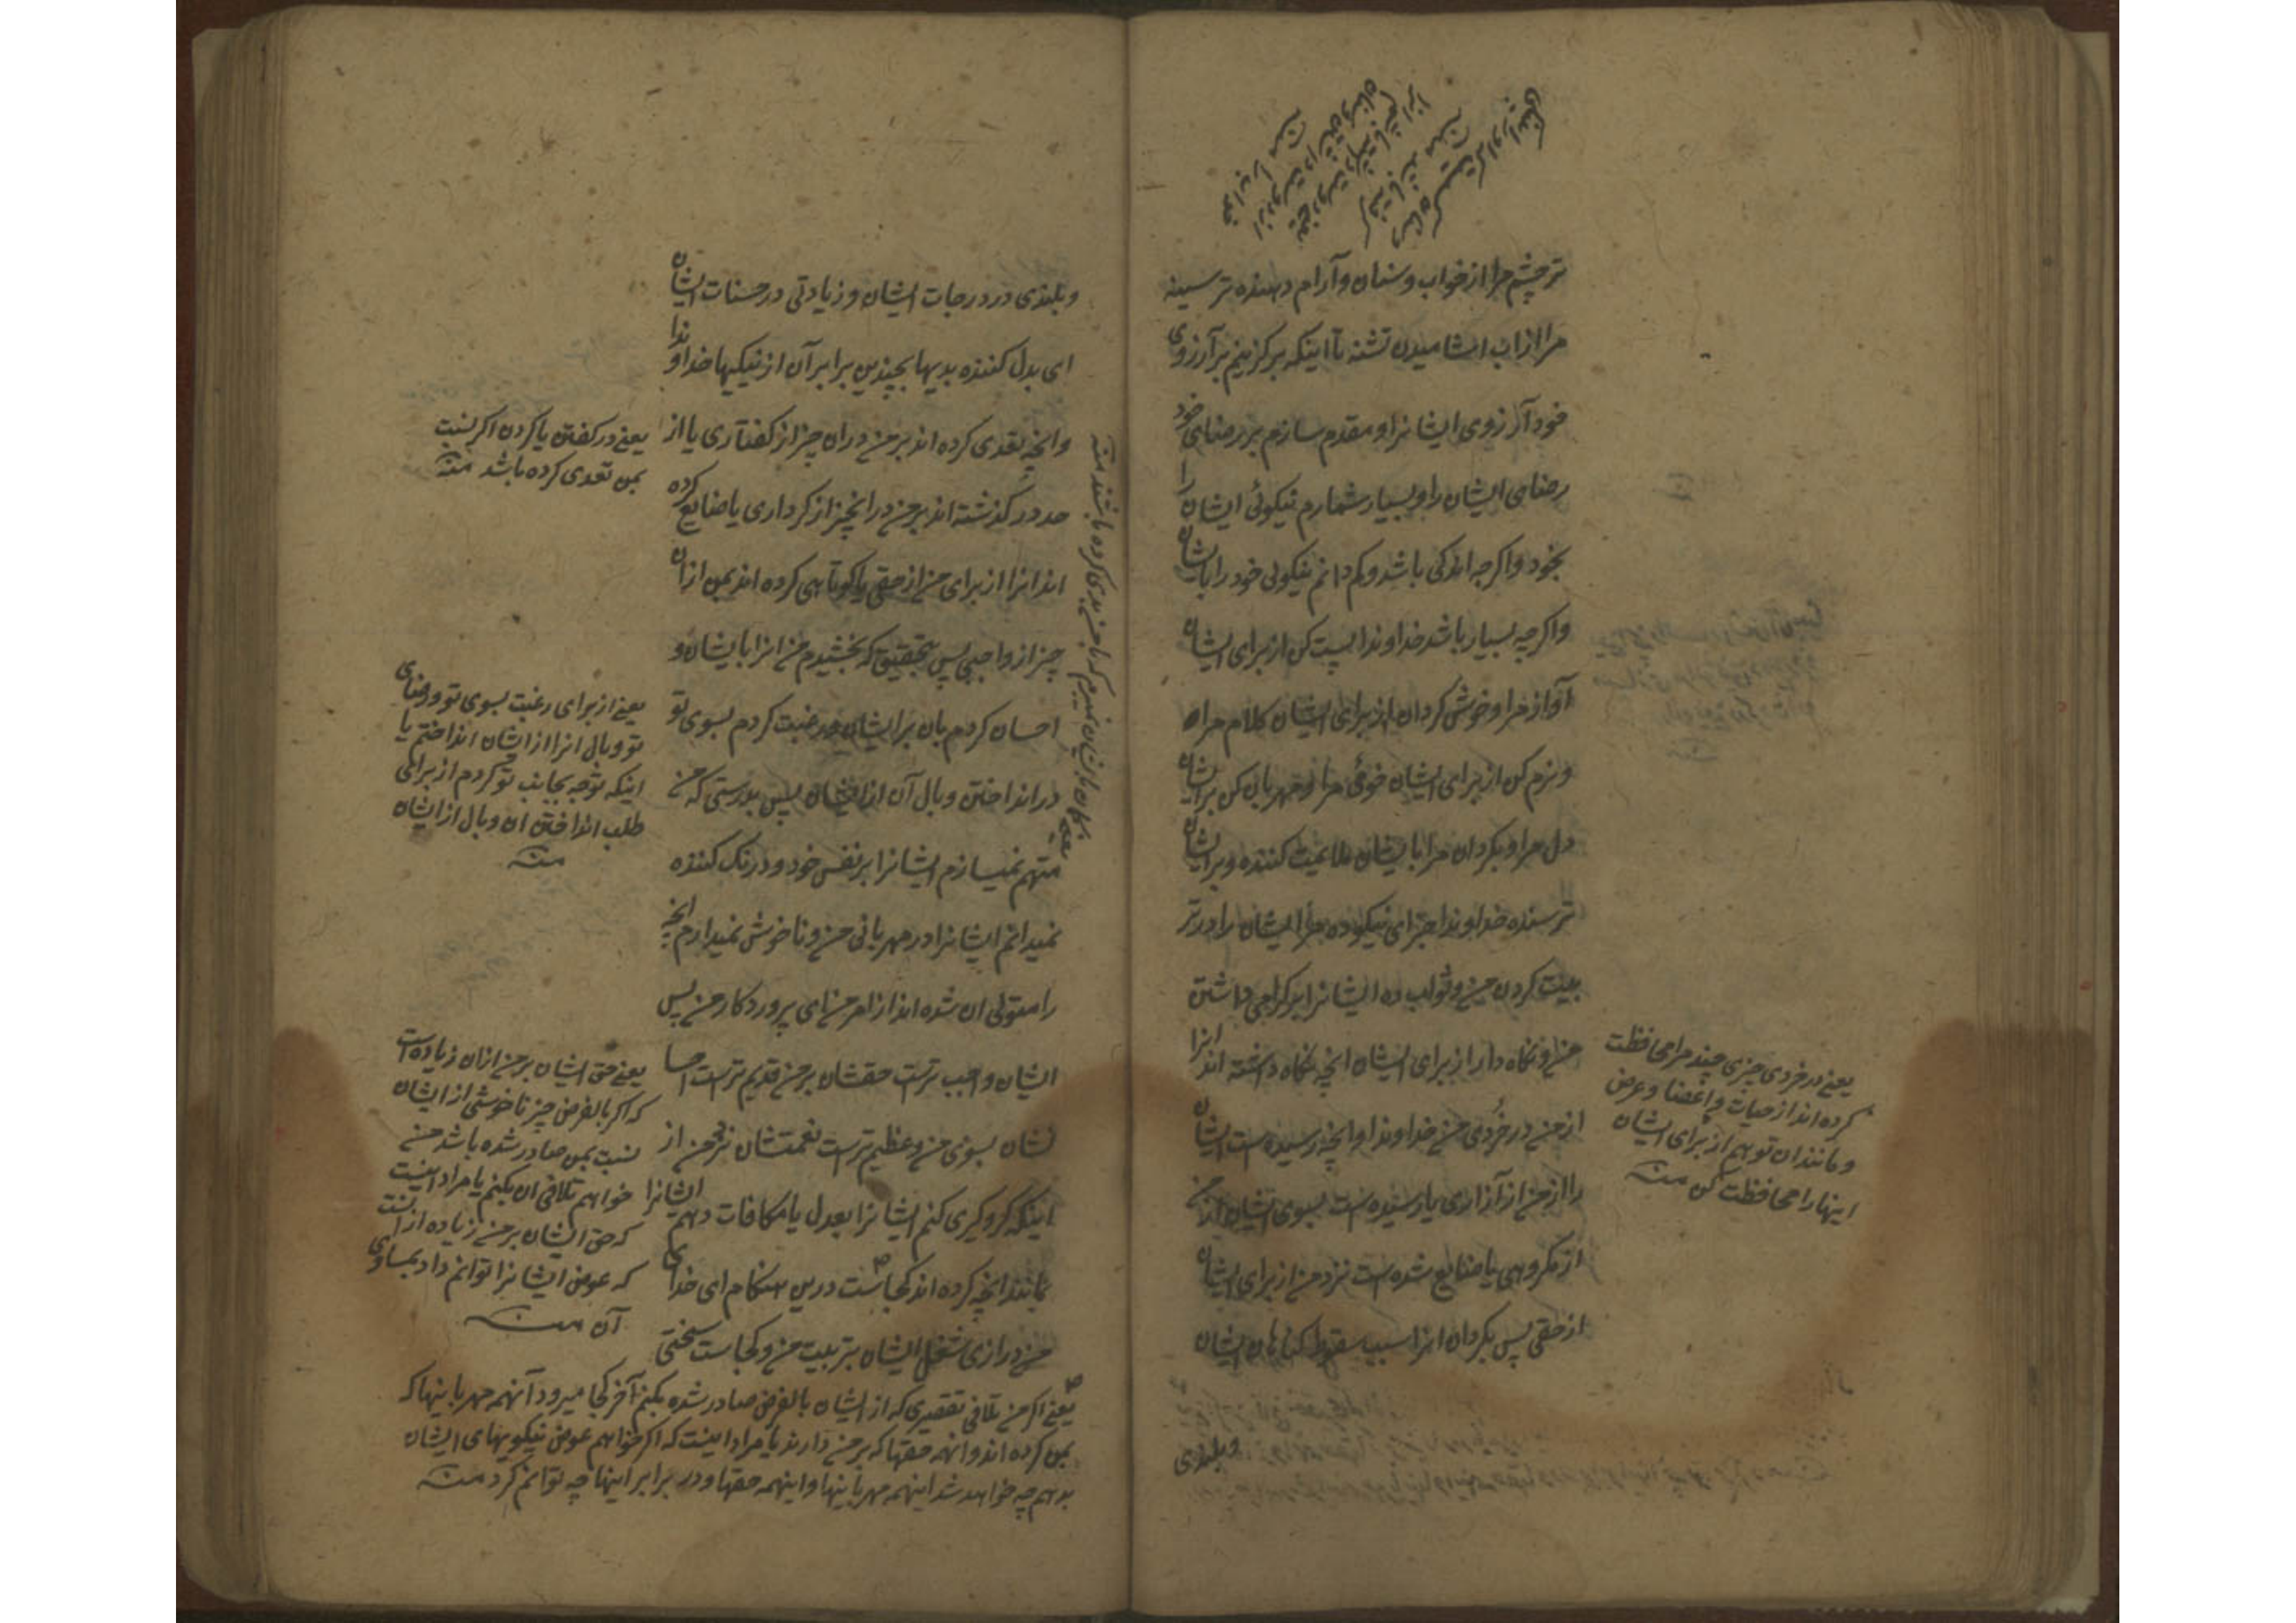 تر چشم مرا از خواب وسنان و آرام دهنده تر سینه
مرا از اب اشامیدن تشنه تا اینکه برگزینم بر آرزوی
خود آرزوی ایشانرا و مقدم سازم بر رضای خود
رضای ایشان را و بسیار شمارم نیکوئی ایشان را
بخود و اکرچه اندکی باشد و کم دانم نیکوئی خود را با ایشان
و اکرچه بسیار باشد خداوندا پست کن از برای ایشان
آواز مرا و خوش کردان از برای ایشان کلام مرا
و نرم کن از برای ایشان خوئی مرا و مهربان کن بر ایشان
دل مرا و بکردان مرا با ایشان ملایمت کننده و بر ایشان
ترسنده خداوندا جزای نیکو ده مر ایشان را در تر
بیت کردن من و ثواب ده ایشانرا بر کرامی داشتن
من و نکاه دار از برای ایشان انچه نکاه داشته اند انرا
از من در خُردی من خداوندا و انچه رسیده ست ایشان
را از من از آزاری یا رسیده ست بسوی ایشان از من
از مکروهی یا ضایع شده ست نزد من از برای ایشان
از حقی پس بکردان انرا سبب سقوط کناهان ایشان
یعنے در خردی چیزی چند مرا محافظت
کرده اند از حیات و اعضا و عرض
و مانند ان تو هم از برای ایشان
اینها را محافظت کن منه
وبلندی
وبلندی در درجات ایشان و زیادتی در حسنات ایشان
ای بدل کننده بدیها بچندین برابر آن از نیکیها خداوندا
وانچه تعدی کرده اند بر من دران چیز از کفتاری یا از
حد در کذشته اند بر من در انچیز از کرداری یا ضایع کرده
اند انرا از برای من از حقی یا کوتاهی کرده اند بمن ازان
چیز از واجبی پس بتحقیق که بخشیدم من انرا بایشان و
احسان کردم بان بر ایشان و رغبت کردم بسوی تو
در انداختن وبال آن از ایشان پس بدرستی که من
متهم نمیسازم ایشانرا بر نفس خود و درنک کننده
نمیدانم ایشانرا در مهربانی من و ناخوش نمیدارم انچه
را متولی ان شده اند از امر من ای پروردکار من پس
ایشان واجب ترست حقشان بر من و قدیم ترست احسا
نشان بسوی من و عظیم ترست نعمتشان نزد من از
اینکه کروکیری کنم ایشانرا بعدل یا مکافات دهم ایشانرا
بمانند انچه کرده اند کجاست درین هنکام ای خدای
من درازی شغل ایشان بتربیت من و کجاست سختی
یعنے در کفتن یا کردن اکر نسبت
بمن تعدی کرده باشد منه
یعنے از برای رغبت بسوی تو و رضای
تو وبال انرا از ایشان انداختم یا
اینکه توجه بجانب تو کردم از برای
طلب انداختن ان وبال از ایشان
منه
یعنے حق ایشان بر من ازان زیاده است
که اکر بالفرض چیز ناخوشی از ایشان
نسبت بمن صادر شده باشد من
خواهم تلافی ان بکنم یا مراد اینست
که حق ایشان بر من زیاده از انست
که عوض ایشانرا توانم داد بمساوی
آن منه
یعنے اکر من تلافی تقصیری که از ایشان بالفرض صادر شده بکنم آخر کجا میرود آنهمه مهربانیها که
بمن کرده اند و انهمه حقها که بر من دارند یا مراد اینست که اکر خواهم عوض نیکوییهای ایشان
بدهم چه خواهد شد اینهمه مهربانیها و اینهمه حقها و در برابر اینها چه توانم کرد منه